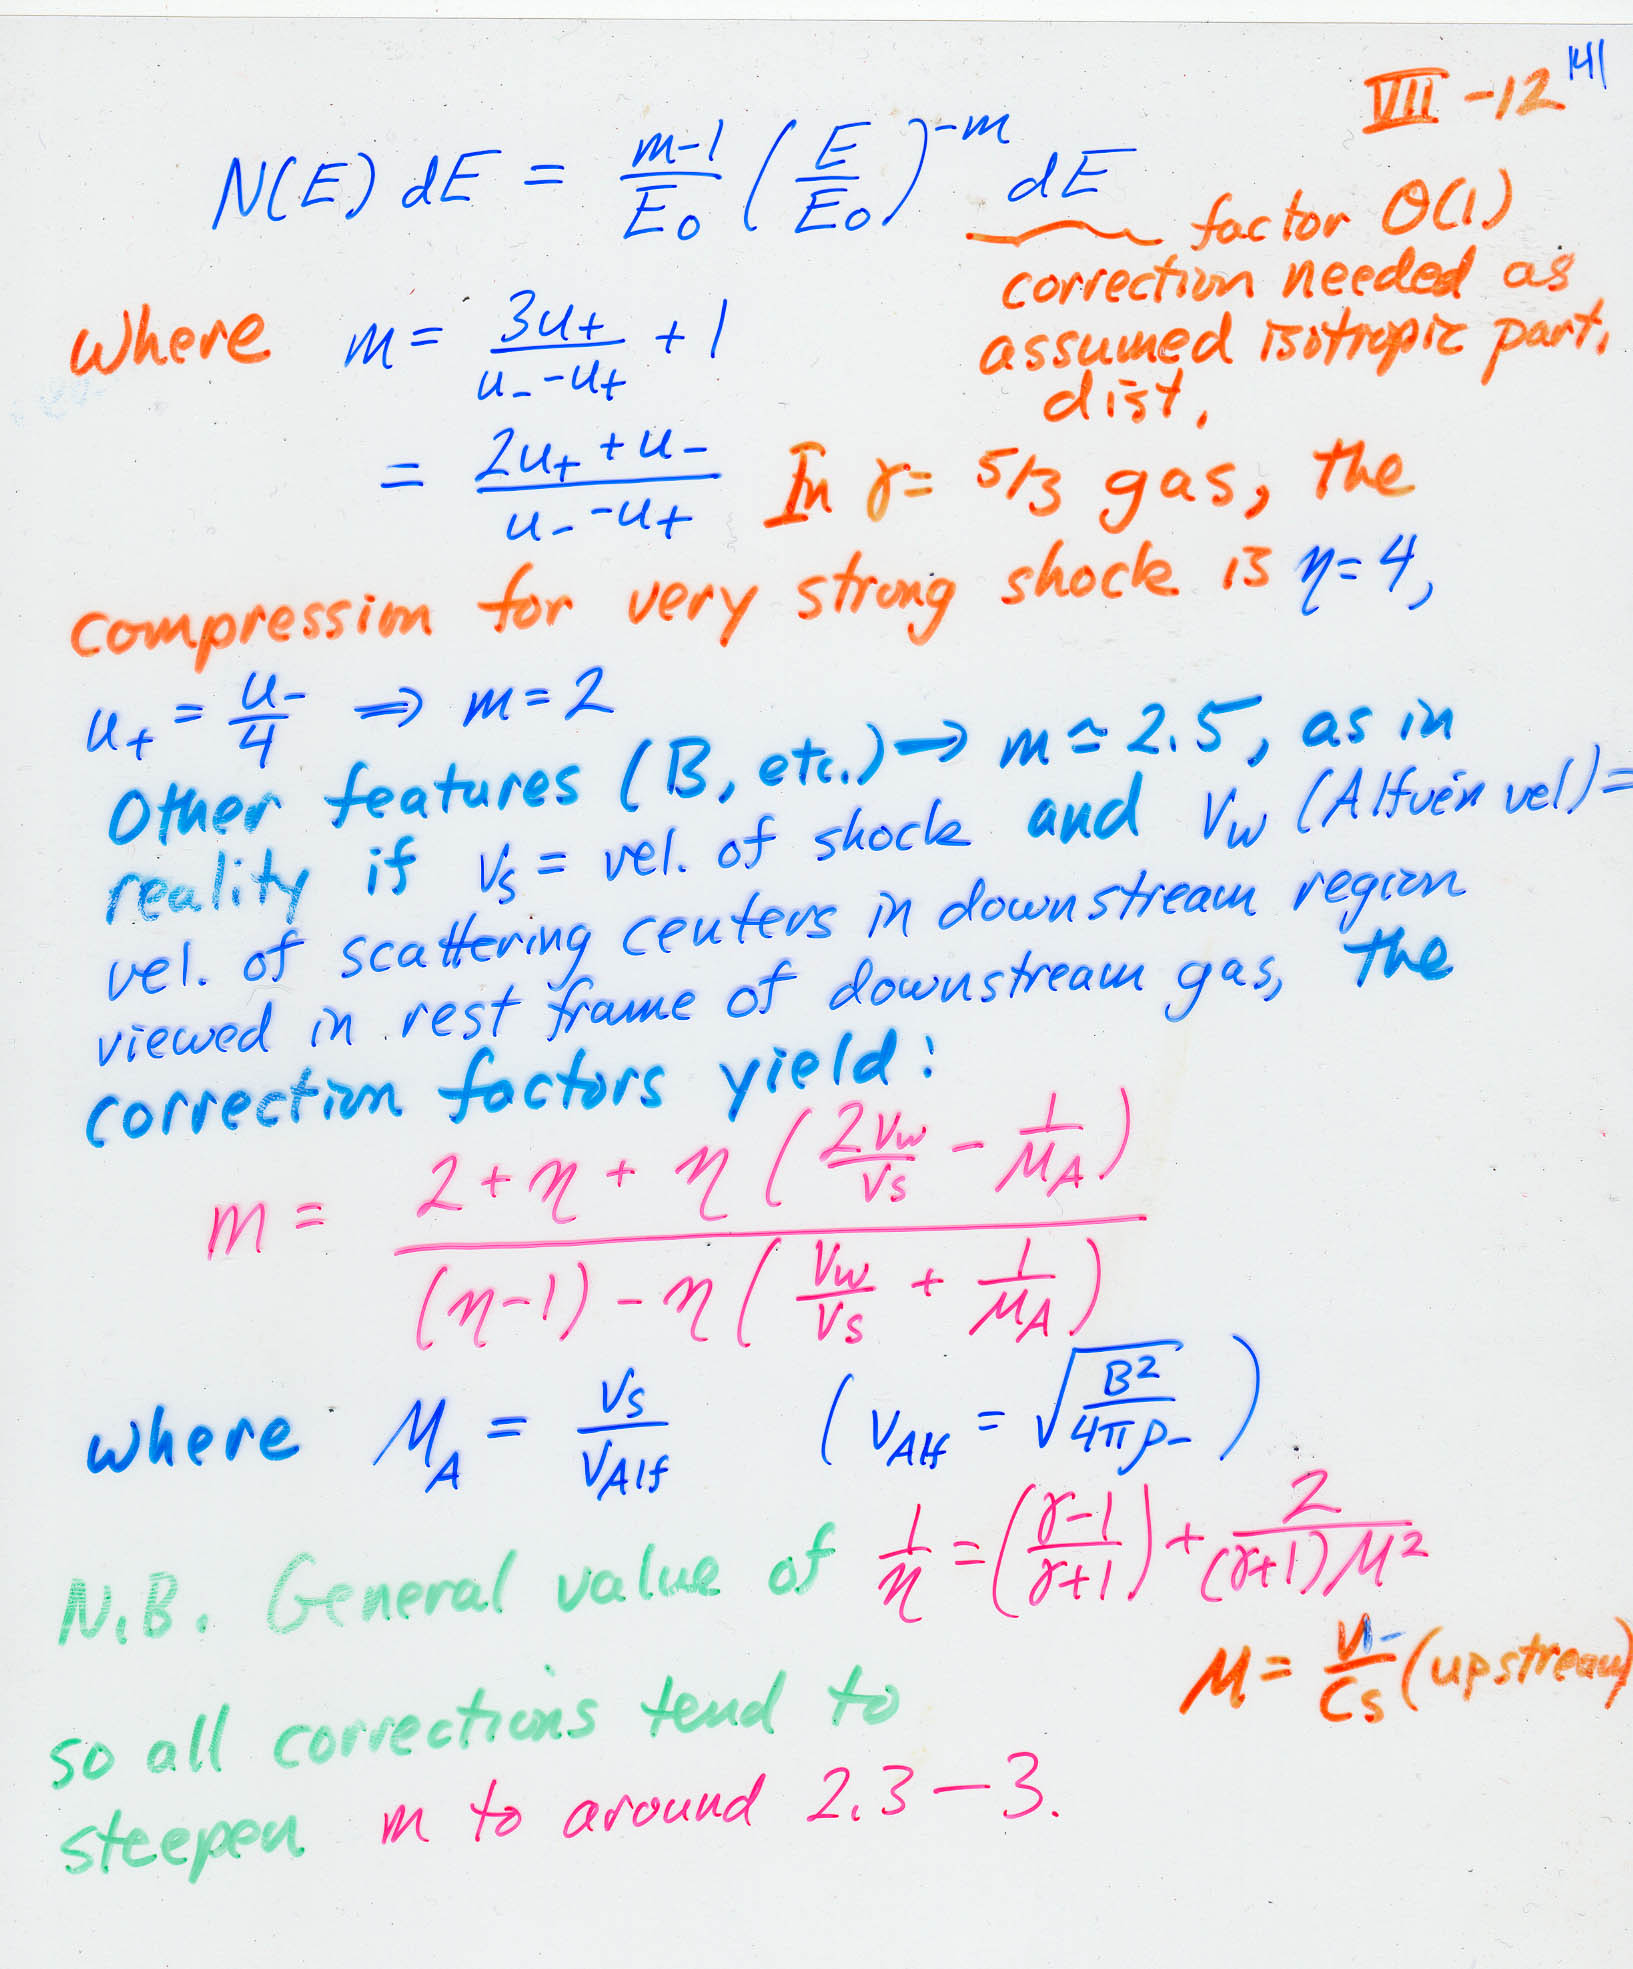 VII-12 141
N(E) dE = \frac{m-1}{E_0} \left( \frac{E}{E_0} \right)^{-m} dE
factor O(1)
correction needed as
assumed isotropic part.
dist.
where m = \frac{3u_+}{u_- - u_+} + 1
= \frac{2u_+ + u_-}{u_- - u_+} In γ = 5/3 gas, the
compression for very strong shock is η = 4,
u_+ = \frac{u_-}{4} ⇒ m = 2
Other features (B, etc.) → m ≃ 2.5, as in
reality if V_s = vel. of shock and V_w (Alfvén vel) =
vel. of scattering centers in downstream region
viewed in rest frame of downstream gas, the
correction factors yield:
m = \frac{2 + η + η \left( \frac{2V_w}{V_s} - \frac{1}{M_A} \right)}{(η-1) - η \left( \frac{V_w}{V_s} + \frac{1}{M_A} \right)}
where M_A = \frac{V_s}{V_{Alf}} \left( V_{Alf} = \sqrt{\frac{B^2}{4πρ_-}} \right)
N.B. General value of \frac{1}{η} = \left( \frac{γ-1}{γ+1} \right) + \frac{2}{(γ+1)M^2}
M = \frac{u_-}{C_s} (upstream)
so all corrections tend to
steepen m to around 2.3 — 3.